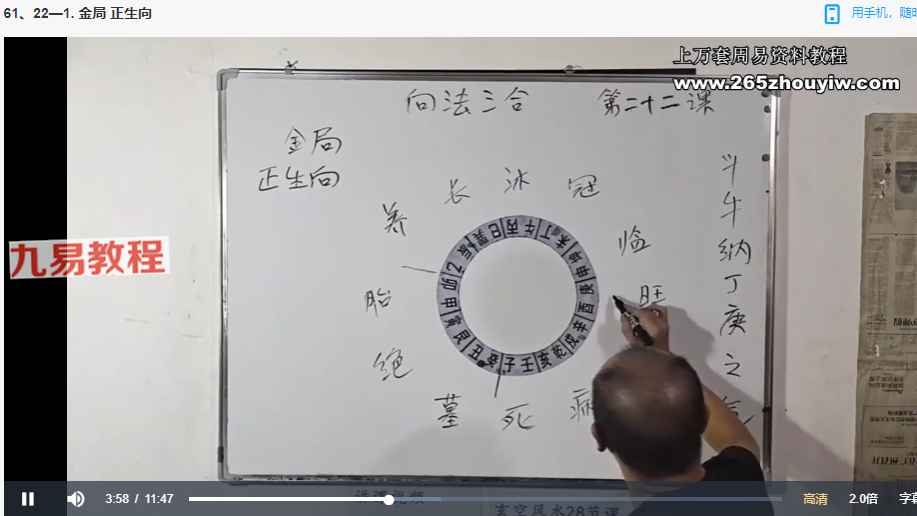 61、22—1. 金局 正生向
用手机，随时
上万套周易资料教程
www.265zhouyiw.com
向法三合 第二十二课
金局
正生向
长 沐 冠
养 临
胎 旺
绝
墓 死 病
斗牛纳丁庚之气
九易教程
巽 巳 丙 午 丁 未 坤 申 庚 酉 辛 戌 乾 亥 壬 子 癸 丑 艮 寅 甲 卯 乙 辰
3:58 / 11:47
高清 2.0倍 字幕
玄空风水28节课